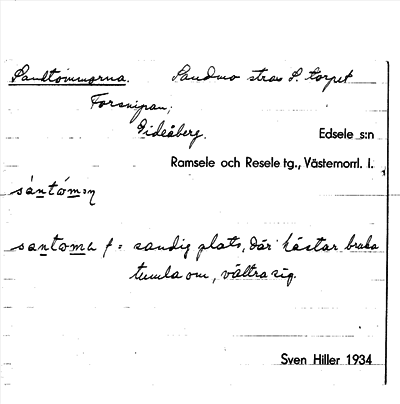 Sandtommorna. Sandmo strax S. torpet
Forsnipan,
Gideåberg. Edsele s:n
Ramsele och Resele tg., Västernorrl. l.
sántómɔŋ
santoma f = sandig plats, där hästar bruka
tumla om, vältra sig.
Sven Hiller 1934